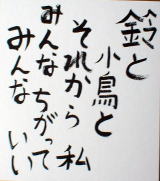 鈴と
小鳥と
それから 私
みんなちがって
みんな いい